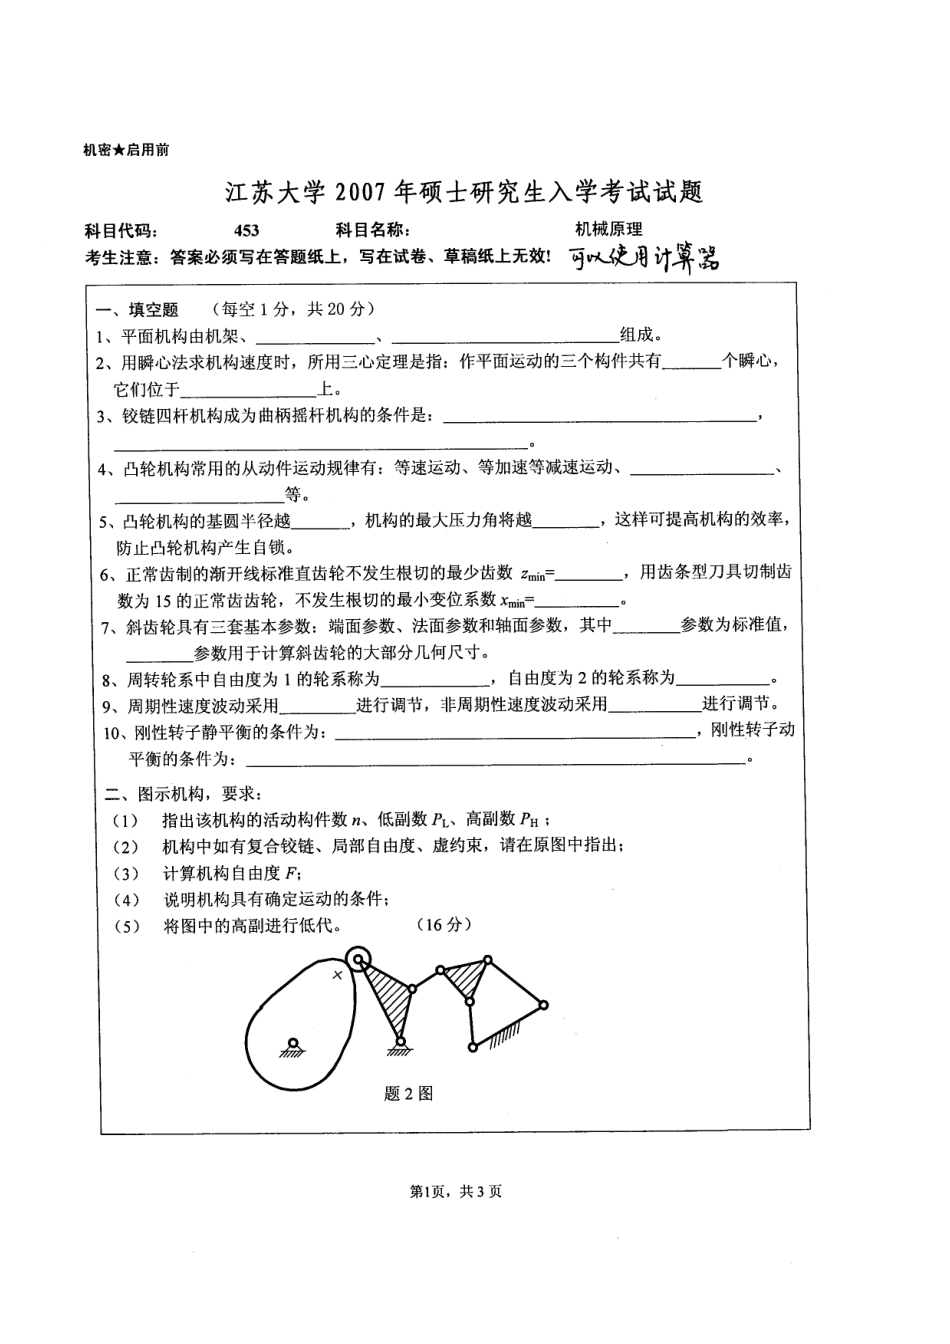 机密★启用前
江苏大学 2007 年硕士研究生入学考试试题
科目代码： 453 科目名称： 机械原理
考生注意：答案必须写在答题纸上，写在试卷、草稿纸上无效! 可以使用计算器
一、填空题 （每空 1 分，共 20 分）
1、平面机构由机架、____________、____________________组成。
2、用瞬心法求机构速度时，所用三心定理是指：作平面运动的三个构件共有______个瞬心，
它们位于____________上。
3、铰链四杆机构成为曲柄摇杆机构的条件是：____________________________，
____________________________________。
4、凸轮机构常用的从动件运动规律有：等速运动、等加速等减速运动、____________、
______________等。
5、凸轮机构的基圆半径越_____，机构的最大压力角将越______，这样可提高机构的效率，
防止凸轮机构产生自锁。
6、正常齿制的渐开线标准直齿轮不发生根切的最少齿数 zmin=______，用齿条型刀具切制齿
数为 15 的正常齿齿轮，不发生根切的最小变位系数 xmin=_______。
7、斜齿轮具有三套基本参数：端面参数、法面参数和轴面参数，其中______参数为标准值，
______参数用于计算斜齿轮的大部分几何尺寸。
8、周转轮系中自由度为 1 的轮系称为_________，自由度为 2 的轮系称为________。
9、周期性速度波动采用_______进行调节，非周期性速度波动采用________进行调节。
10、刚性转子静平衡的条件为：______________________________，刚性转子动
平衡的条件为：__________________________________________。
二、图示机构，要求：
（1） 指出该机构的活动构件数 n、低副数 PL、高副数 PH；
（2） 机构中如有复合铰链、局部自由度、虚约束，请在原图中指出；
（3） 计算机构自由度 F；
（4） 说明机构具有确定运动的条件；
（5） 将图中的高副进行低代。 （16 分）
×
题 2 图
第1页，共 3 页